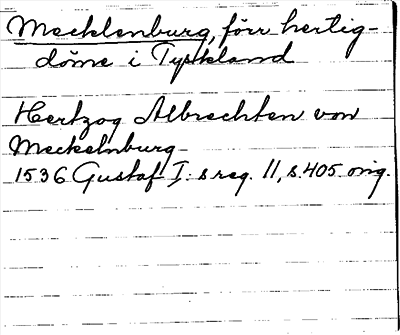 Mecklenburg, förr hertig-
döme i Tyskland
Hertzog Albrechten von
Meckelnburg-
1536 Gustaf I:s reg. 11, s. 405 orig.